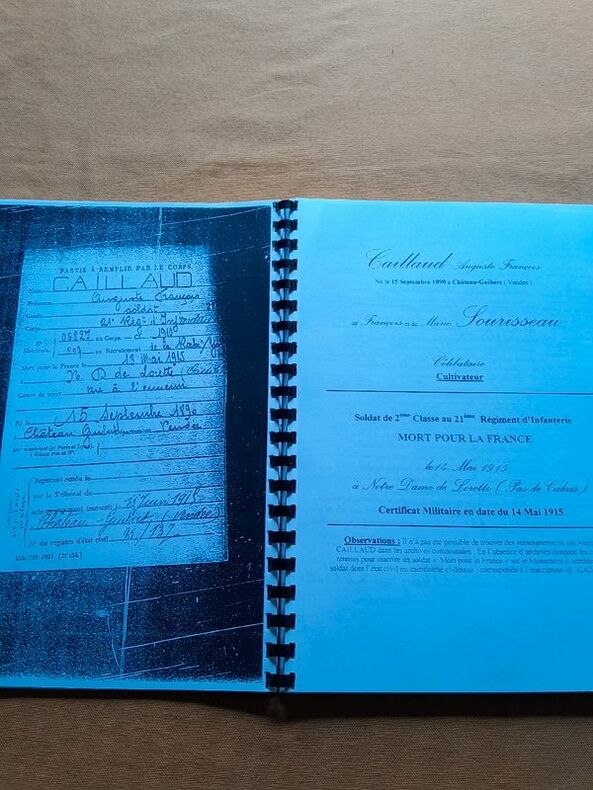 PARTIE À REMPLIR PAR LE CORPS.
CAILLAUD
Nom
Prénoms Auguste François
Grade soldat
Corps 21e Rég d'Infanterie
N° 06827 au Corps. — Cl. 1910
Matricule. 507 au Recrutement de la Roche s/Yon
Mort pour la France le 13 Mai 1915
à N. D de Lorette
Genre de mort tué à l'ennemi
Né le 15 Septembre 1890
à Château Guibert Département Vendée
Arr municipal (p' Paris et Lyon),
à défaut rue et N°.
Jugement rendu le
par le Tribunal du
acte transcrit le Juin 1915
à Château Guibert (Vendée)
N° du registre d'état civil 31/737
Caillaud Auguste François
Né le 15 Septembre 1890 à Château-Guibert (Vendée)
de François et de Marie Sourisseau
Célibataire
Cultivateur
Soldat de 2ème Classe au 21ème Régiment d'Infanterie
MORT POUR LA FRANCE
le 14 Mai 1915
à Notre Dame de Lorette (Pas de Calais)
Certificat Militaire en date du 14 Mai 1915
Observations : Il n'a pas été possible de trouver des renseignements sur
CAILLAUD dans les archives communales. En l'absence d'archives
retenus pour inscrire un soldat « Mort pour la France » sur le Monument
soldat dont l'état civil est mentionné ci-dessus, corresponde à l'inscription